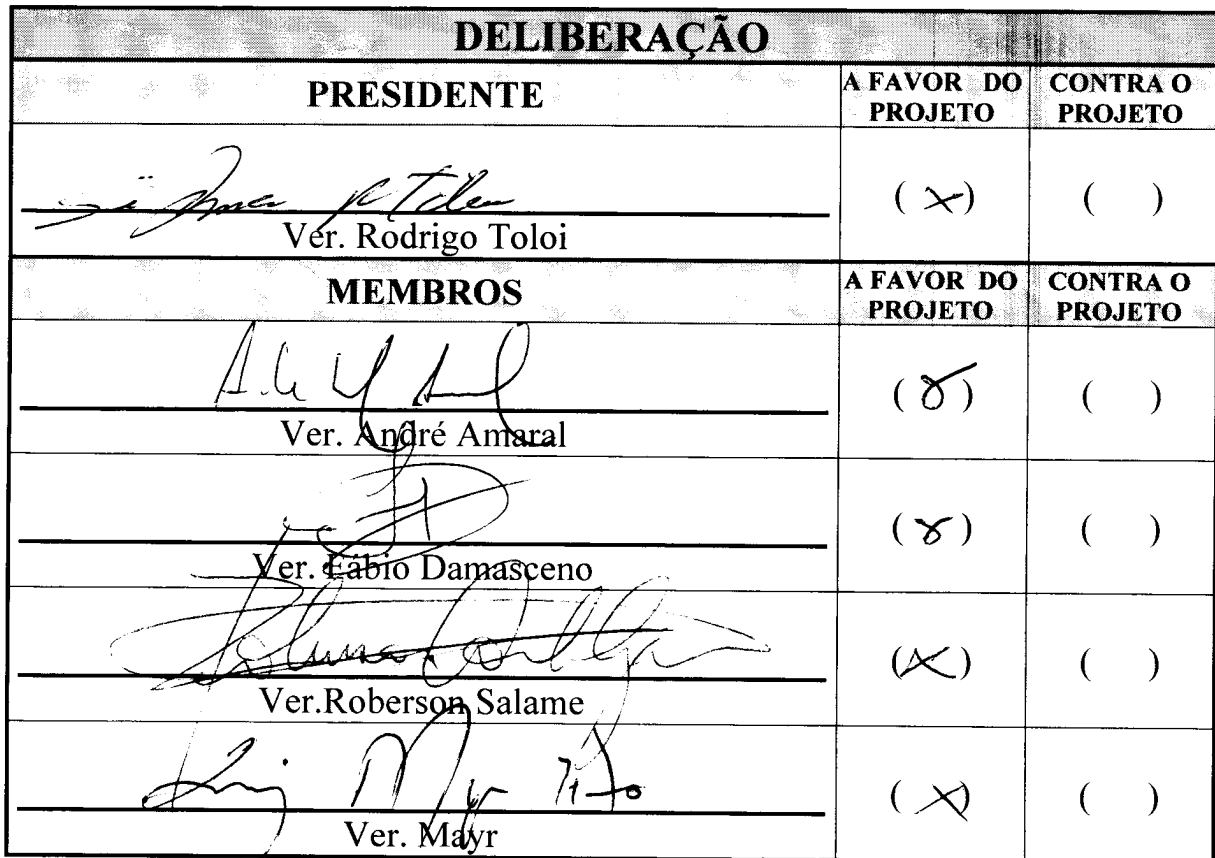 DELIBERAÇÃO
PRESIDENTE
A FAVOR DO
PROJETO
CONTRA O
PROJETO
Ver. Rodrigo Toloi
(X)
( )
MEMBROS
A FAVOR DO
PROJETO
CONTRA O
PROJETO
Ver. André Amaral
(X)
( )
Ver. Fábio Damasceno
(X)
( )
Ver.Roberson Salame
(X)
( )
Ver. Mayr
(X)
( )